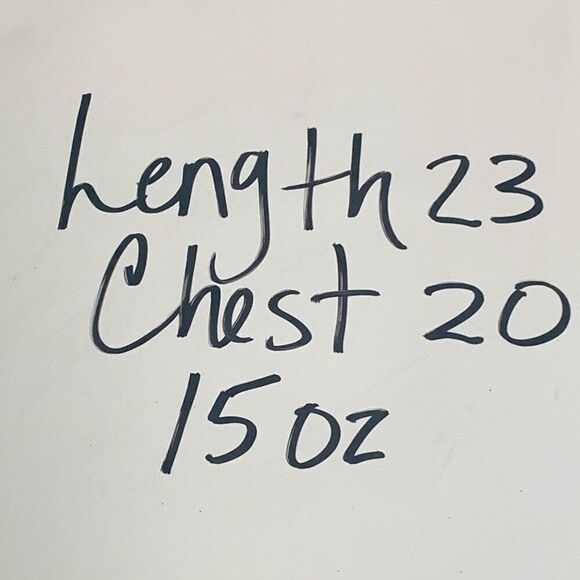 Length 23
Chest 20
15 oz